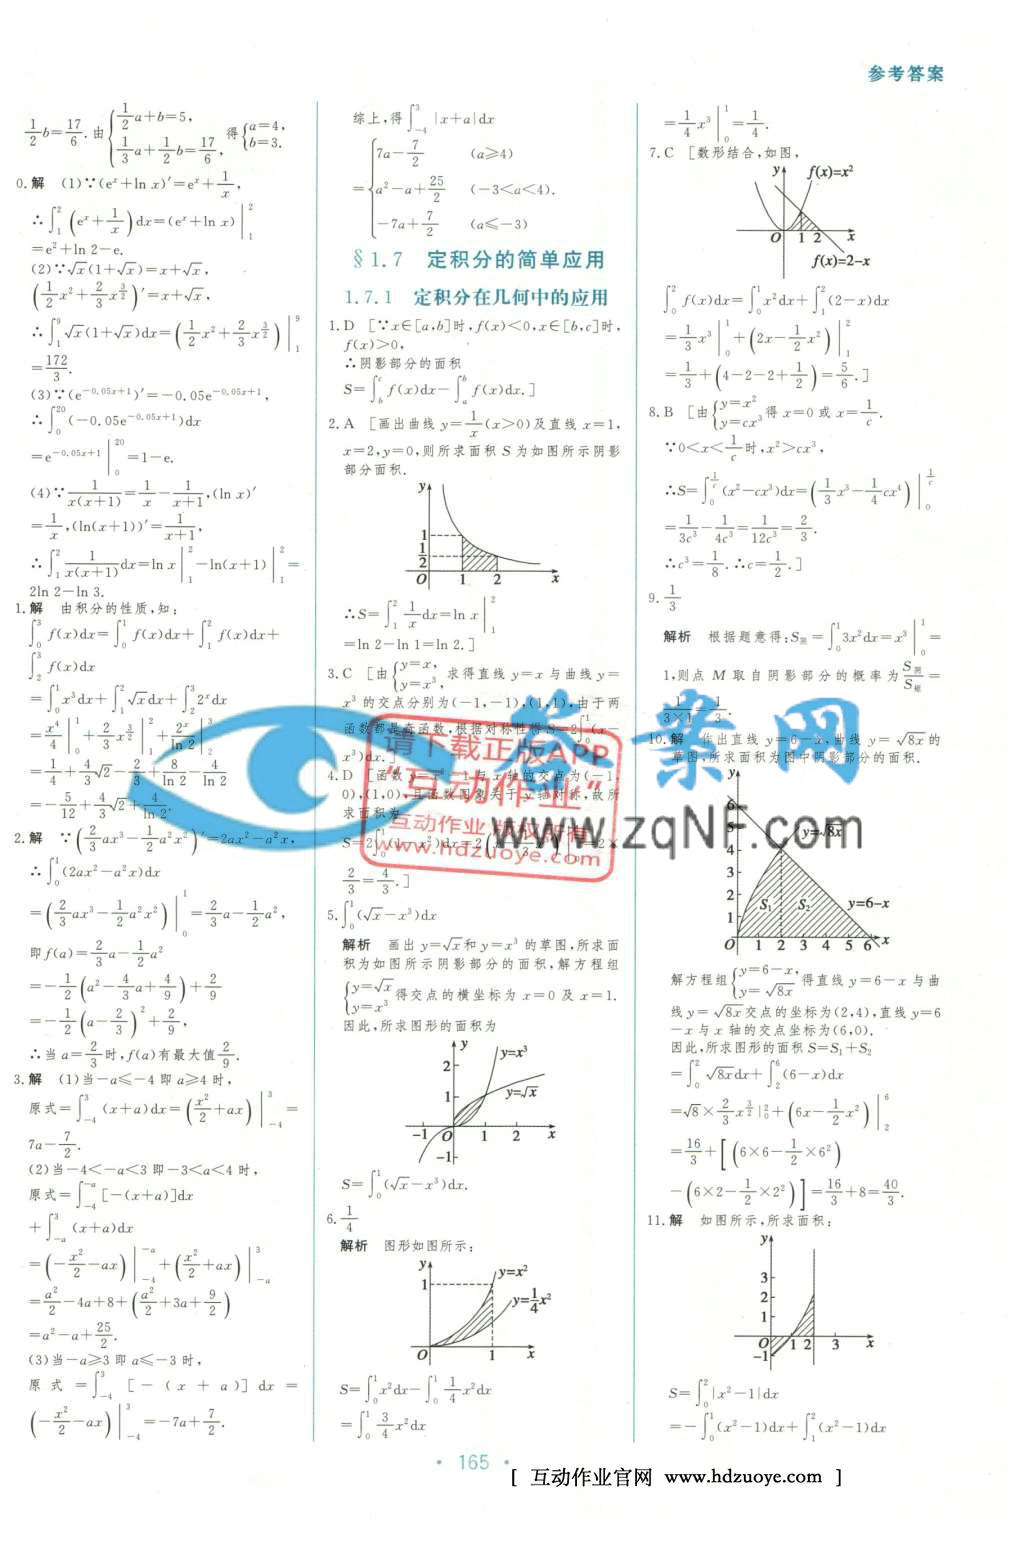 参考答案
1/2 b=17/6.由{1/2 a+b=5, 1/3 a+1/2 b=17/6, 得{a=4, b=3.
0.解 (1)∵(eˣ+ln x)′=eˣ+1/x,
∴∫₁²(eˣ+1/x)dx=(eˣ+ln x)|₁²
=e²+ln 2-e.
(2)∵√x(1+√x)=x+√x,
(1/2 x²+2/3 x^(3/2))′=x+√x,
∴∫₁⁹√x(1+√x)dx=(1/2 x²+2/3 x^(3/2))|₁⁹
=172/3.
(3)∵(e^(-0.05x+1))′=-0.05e^(-0.05x+1),
∴∫₀²⁰(-0.05e^(-0.05x+1))dx
=e^(-0.05x+1)|₀²⁰=1-e.
(4)∵1/(x(x+1))=1/x-1/(x+1),(ln x)′
=1/x,(ln(x+1))′=1/(x+1),
∴∫₁² 1/(x(x+1))dx=ln x|₁²-ln(x+1)|₁²=
2ln 2-ln 3.
1.解 由积分的性质,知:
∫₀³f(x)dx=∫₀¹f(x)dx+∫₁²f(x)dx+
∫₂³f(x)dx
=∫₀¹x³dx+∫₁²√x dx+∫₂³2ˣdx
=x⁴/4|₀¹+2/3 x^(3/2)|₁²+2ˣ/ln 2|₂³
=1/4+4/3√2-2/3+8/ln 2-4/ln 2
=-5/12+4/3√2+4/ln 2.
2.解 ∵(2/3 ax³-1/2 a²x²)′=2ax²-a²x,
∴∫₀¹(2ax²-a²x)dx
=(2/3 ax³-1/2 a²x²)|₀¹=2/3 a-1/2 a²,
即f(a)=2/3 a-1/2 a²
=-1/2(a²-4/3 a+4/9)+2/9
=-1/2(a-2/3)²+2/9,
∴当a=2/3时,f(a)有最大值2/9.
3.解 (1)当-a≤-4即a≥4时,
原式=∫₋₄³(x+a)dx=(x²/2+ax)|₋₄³=
7a-7/2.
(2)当-4<-a<3即-3<a<4时,
原式=∫₋₄⁻ᵃ[-(x+a)]dx
+∫₋ₐ³(x+a)dx
=(-x²/2-ax)|₋₄⁻ᵃ+(x²/2+ax)|₋ₐ³
=a²/2-4a+8+(a²/2+3a+9/2)
=a²-a+25/2.
(3)当-a≥3即a≤-3时,
原式=∫₋₄³[-(x+a)]dx=
(-x²/2-ax)|₋₄³=-7a+7/2.
综上,得∫₋₄³|x+a|dx
={7a-7/2 (a≥4)
a²-a+25/2 (-3<a<4).
-7a+7/2 (a≤-3)
§1.7 定积分的简单应用
1.7.1 定积分在几何中的应用
1.D [∵x∈[a,b]时,f(x)<0,x∈[b,c]时,
f(x)>0,
∴阴影部分的面积
S=∫_b^c f(x)dx-∫_a^b f(x)dx.]
2.A [画出曲线y=1/x(x>0)及直线x=1,
x=2,y=0,则所求面积S为如图所示阴影
部分面积.
y
1
1/2
O 1 2 x
∴S=∫₁² 1/x dx=ln x|₁²
=ln 2-ln 1=ln 2.]
3.C [由{y=x, y=x³, 求得直线y=x与曲线y=
x³的交点分别为(-1,-1),(1,1),由于两
函数都是奇函数,根据对称性得S=2∫₀¹(x-
x³)dx.]
4.D [函数y= 与x轴的交点为(-1,
0),(1,0),且函数图象关于y轴对称,故所
求面积为
S=2∫₀¹(1-x²)dx=2( )|₀¹=2×
2/3=4/3.]
5.∫₀¹(√x-x³)dx
解析 画出y=√x和y=x³的草图,所求面
积为如图所示阴影部分的面积,解方程组
{y=√x y=x³得交点的横坐标为x=0及x=1.
因此,所求图形的面积为
y y=x³
2
1 y=√x
-1 O 1 2 x
-1
S=∫₀¹(√x-x³)dx.
6.1/4
解析 图形如图所示:
y y=x²
1 y=1/4 x²
O 1 x
S=∫₀¹x²dx-∫₀¹ 1/4 x²dx
=∫₀¹ 3/4 x²dx
=1/4 x³|₀¹=1/4.
7.C [数形结合,如图,
y f(x)=x²
O 1 2 x
f(x)=2-x
∫₀²f(x)dx=∫₀¹x²dx+∫₁²(2-x)dx
=1/3 x³|₀¹+(2x-1/2 x²)|₁²
=1/3+(4-2-2+1/2)=5/6.]
8.B [由{y=x² y=cx³得x=0或x=1/c.
∵0<x<1/c时,x²>cx³,
∴S=∫₀^(1/c)(x²-cx³)dx=(1/3 x³-1/4 cx⁴)|₀^(1/c)
=1/3c³-1/4c³=1/12c³=2/3.
∴c³=1/8.∴c=1/2.]
9.1/3
解析 根据题意得:S阴=∫₀¹3x²dx=x³|₀¹=
1,则点M取自阴影部分的概率为S阴/S矩=
1/(3×1)=1/3.
10.解 作出直线y=6-x,曲线y=√8x的
草图,所求面积为图中阴影部分的面积.
y
6
5 y=√8x
4
3
2 S₁ S₂ y=6-x
1
O 1 2 3 4 5 6 x
解方程组{y=6-x, y=√8x得直线y=6-x与曲
线y=√8x交点的坐标为(2,4),直线y=6
-x与x轴的交点坐标为(6,0).
因此,所求图形的面积S=S₁+S₂
=∫₀²√8x dx+∫₂⁶(6-x)dx
=√8×2/3 x^(3/2)|₀²+(6x-1/2 x²)|₂⁶
=16/3+[(6×6-1/2×6²)
-(6×2-1/2×2²)]=16/3+8=40/3.
11.解 如图所示,所求面积:
y
3
2
1
1 2 3 x
-1
S=∫₀²|x²-1|dx
=-∫₀¹(x²-1)dx+∫₁²(x²-1)dx
答案网
www.zqNF.com
请下载正版APP
“互动作业”
互动作业 版权所有
www.hdzuoye.com
· 165 ·
[ 互动作业官网 www.hdzuoye.com ]